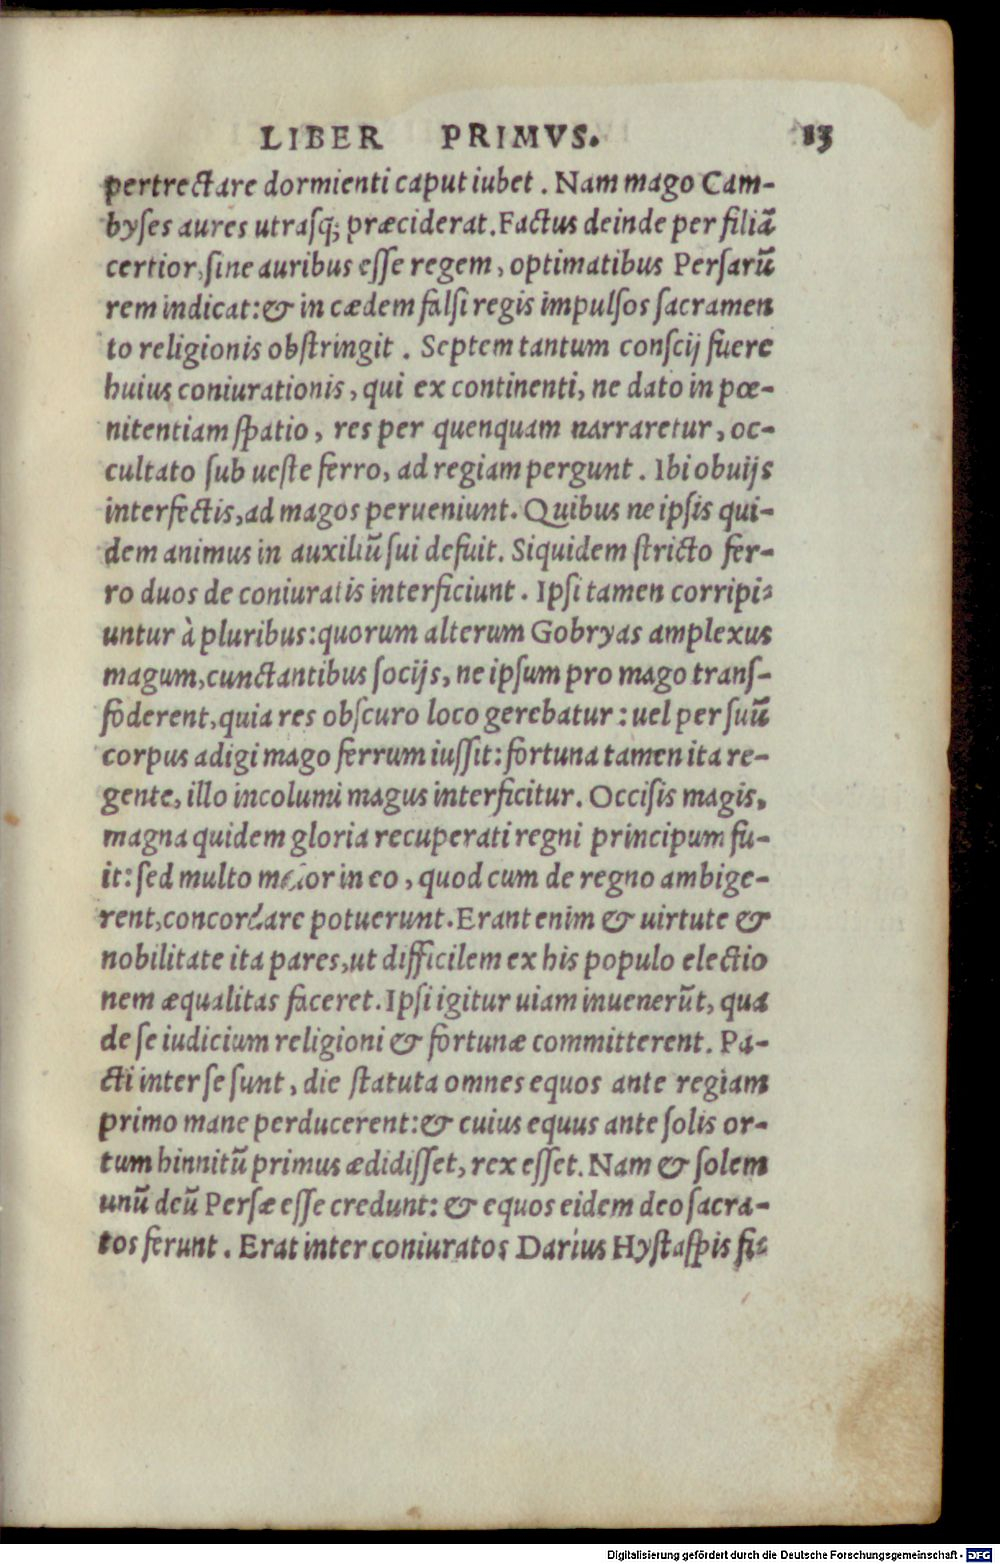 LIBER PRIMVS. 13
pertrectare dormienti caput iubet. Nam mago Cam-
byses aures utrasq; præciderat. Factus deinde per filiā
certior, sine auribus esse regem, optimatibus Persarū
rem indicat: & in cædem falsi regis impulsos sacramen
to religionis obstringit. Septem tantum conscij fuere
huius coniurationis, qui ex continenti, ne dato in pœ-
nitentiam spatio, res per quenquam narraretur, oc-
cultato sub ueste ferro, ad regiam pergunt. Ibi obuijs
interfectis, ad magos perueniunt. Quibus ne ipsis qui-
dem animus in auxiliū sui defuit. Siquidem stricto fer-
ro duos de coniuratis interficiunt. Ipsi tamen corripi-
untur à pluribus: quorum alterum Gobryas amplexus
magum, cunctantibus socijs, ne ipsum pro mago trans-
foderent, quia res obscuro loco gerebatur: uel per suū
corpus adigi mago ferrum iussit: fortuna tamen ita re-
gente, illo incolumi magus interficitur. Occisis magis,
magna quidem gloria recuperati regni principum fu-
it: sed multo maior in eo, quod cum de regno ambige-
rent, concordare potuerunt. Erant enim & uirtute &
nobilitate ita pares, ut difficilem ex his populo electio
nem æqualitas faceret. Ipsi igitur uiam inuenerūt, qua
de se iudicium religioni & fortunæ committerent. Pa-
cti inter se sunt, die statuta omnes equos ante regiam
primo mane perducerent: & cuius equus ante solis or-
tum hinnitū primus ædidisset, rex esset. Nam & solem
unū deū Persæ esse credunt: & equos eidem deo sacra-
tos ferunt. Erat inter coniuratos Darius Hystaspis fi-
Digitalisierung gefördert durch die Deutsche Forschungsgemeinschaft - DFG